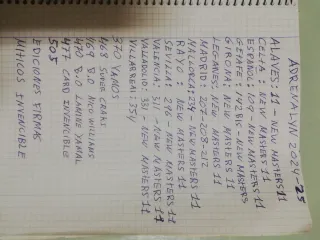 ADRENALYN 2024-25
ALAVES: 11 - NEW MASTERS 11
CELTA: NEW MASTERS 11
ESPAÑOL: 109 - NEW MASTERS 11
GETAFE: - NEW MASTERS
GIRONA: NEW MASTERS 11
LEGANES: NEW MASTERS 11
MADRID: 207-208-212
MALLORCA: 234 - NEW MASTERS 11
RAYO: NEW MASTERS 11
SEVILLA: - NEW MASTERS 11
VALENCIA: 311 - NEW MASTERS 11
VALLADOLID: 330 - NEW MASTERS 11
VILLARREAL: 354
370 VAMOS
468 SUPER CRAKS
469 BIO NICO WILLIAMS
470 BIO LAMINE YAMAL
477 CARD INVENCIBLE
505
EDICIONES FIRMAS
MITICOS INVENCIBLE